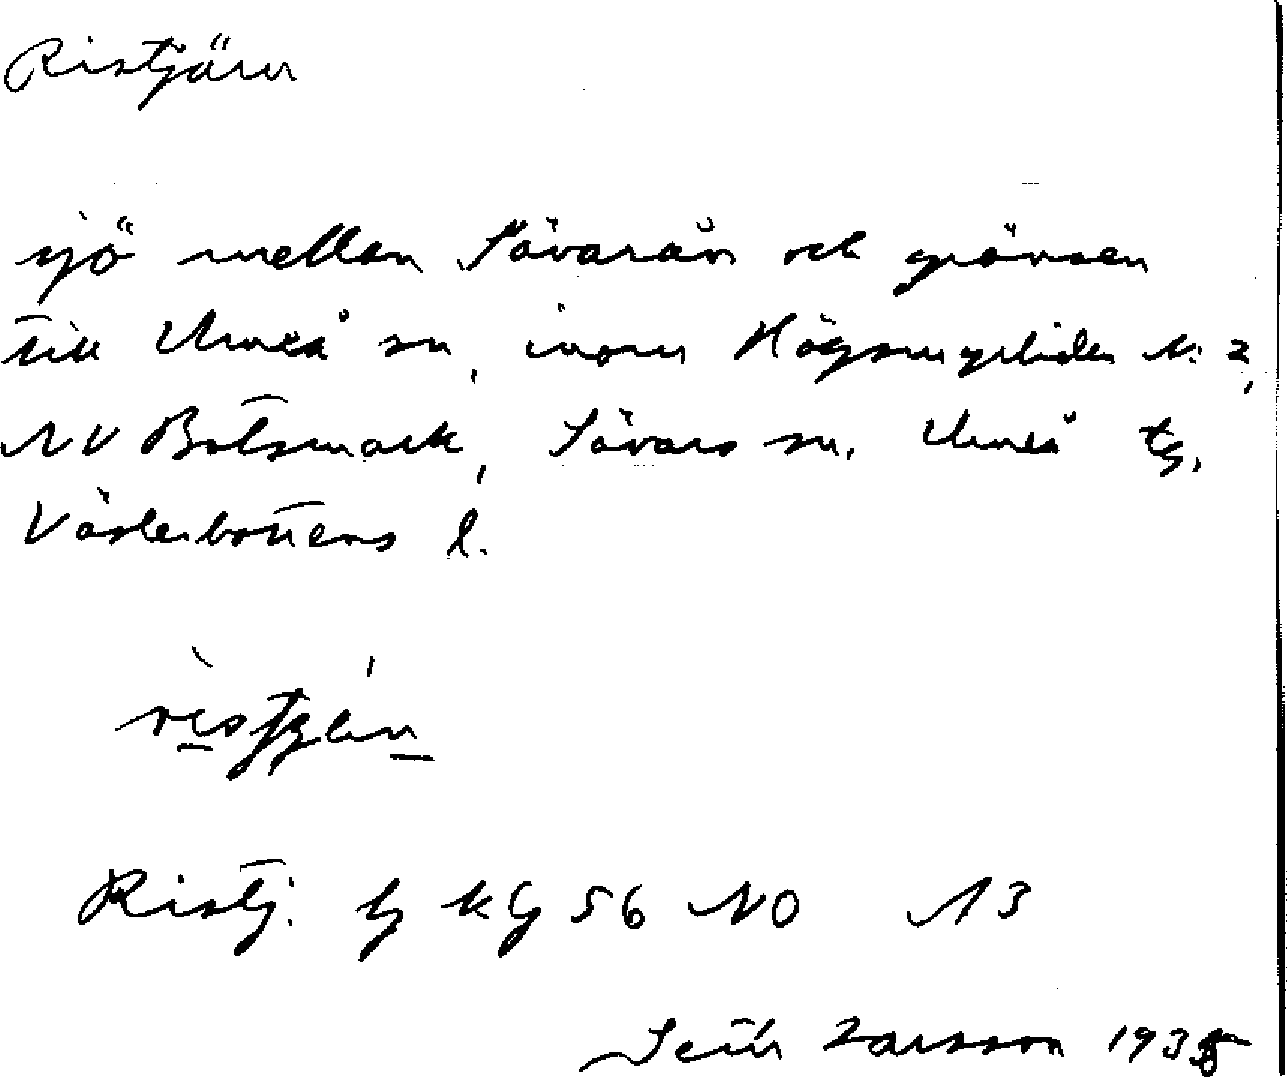 Ristjärn
sjö mellan Sävarån och gränsen
till Umeå sn, inom Högsmyrliden N: 2,
NV Botsmark, Sävars sn, Umeå tg,
Västerbottens l.
Ristj. G kG 56 NO A3
Larsson 1935